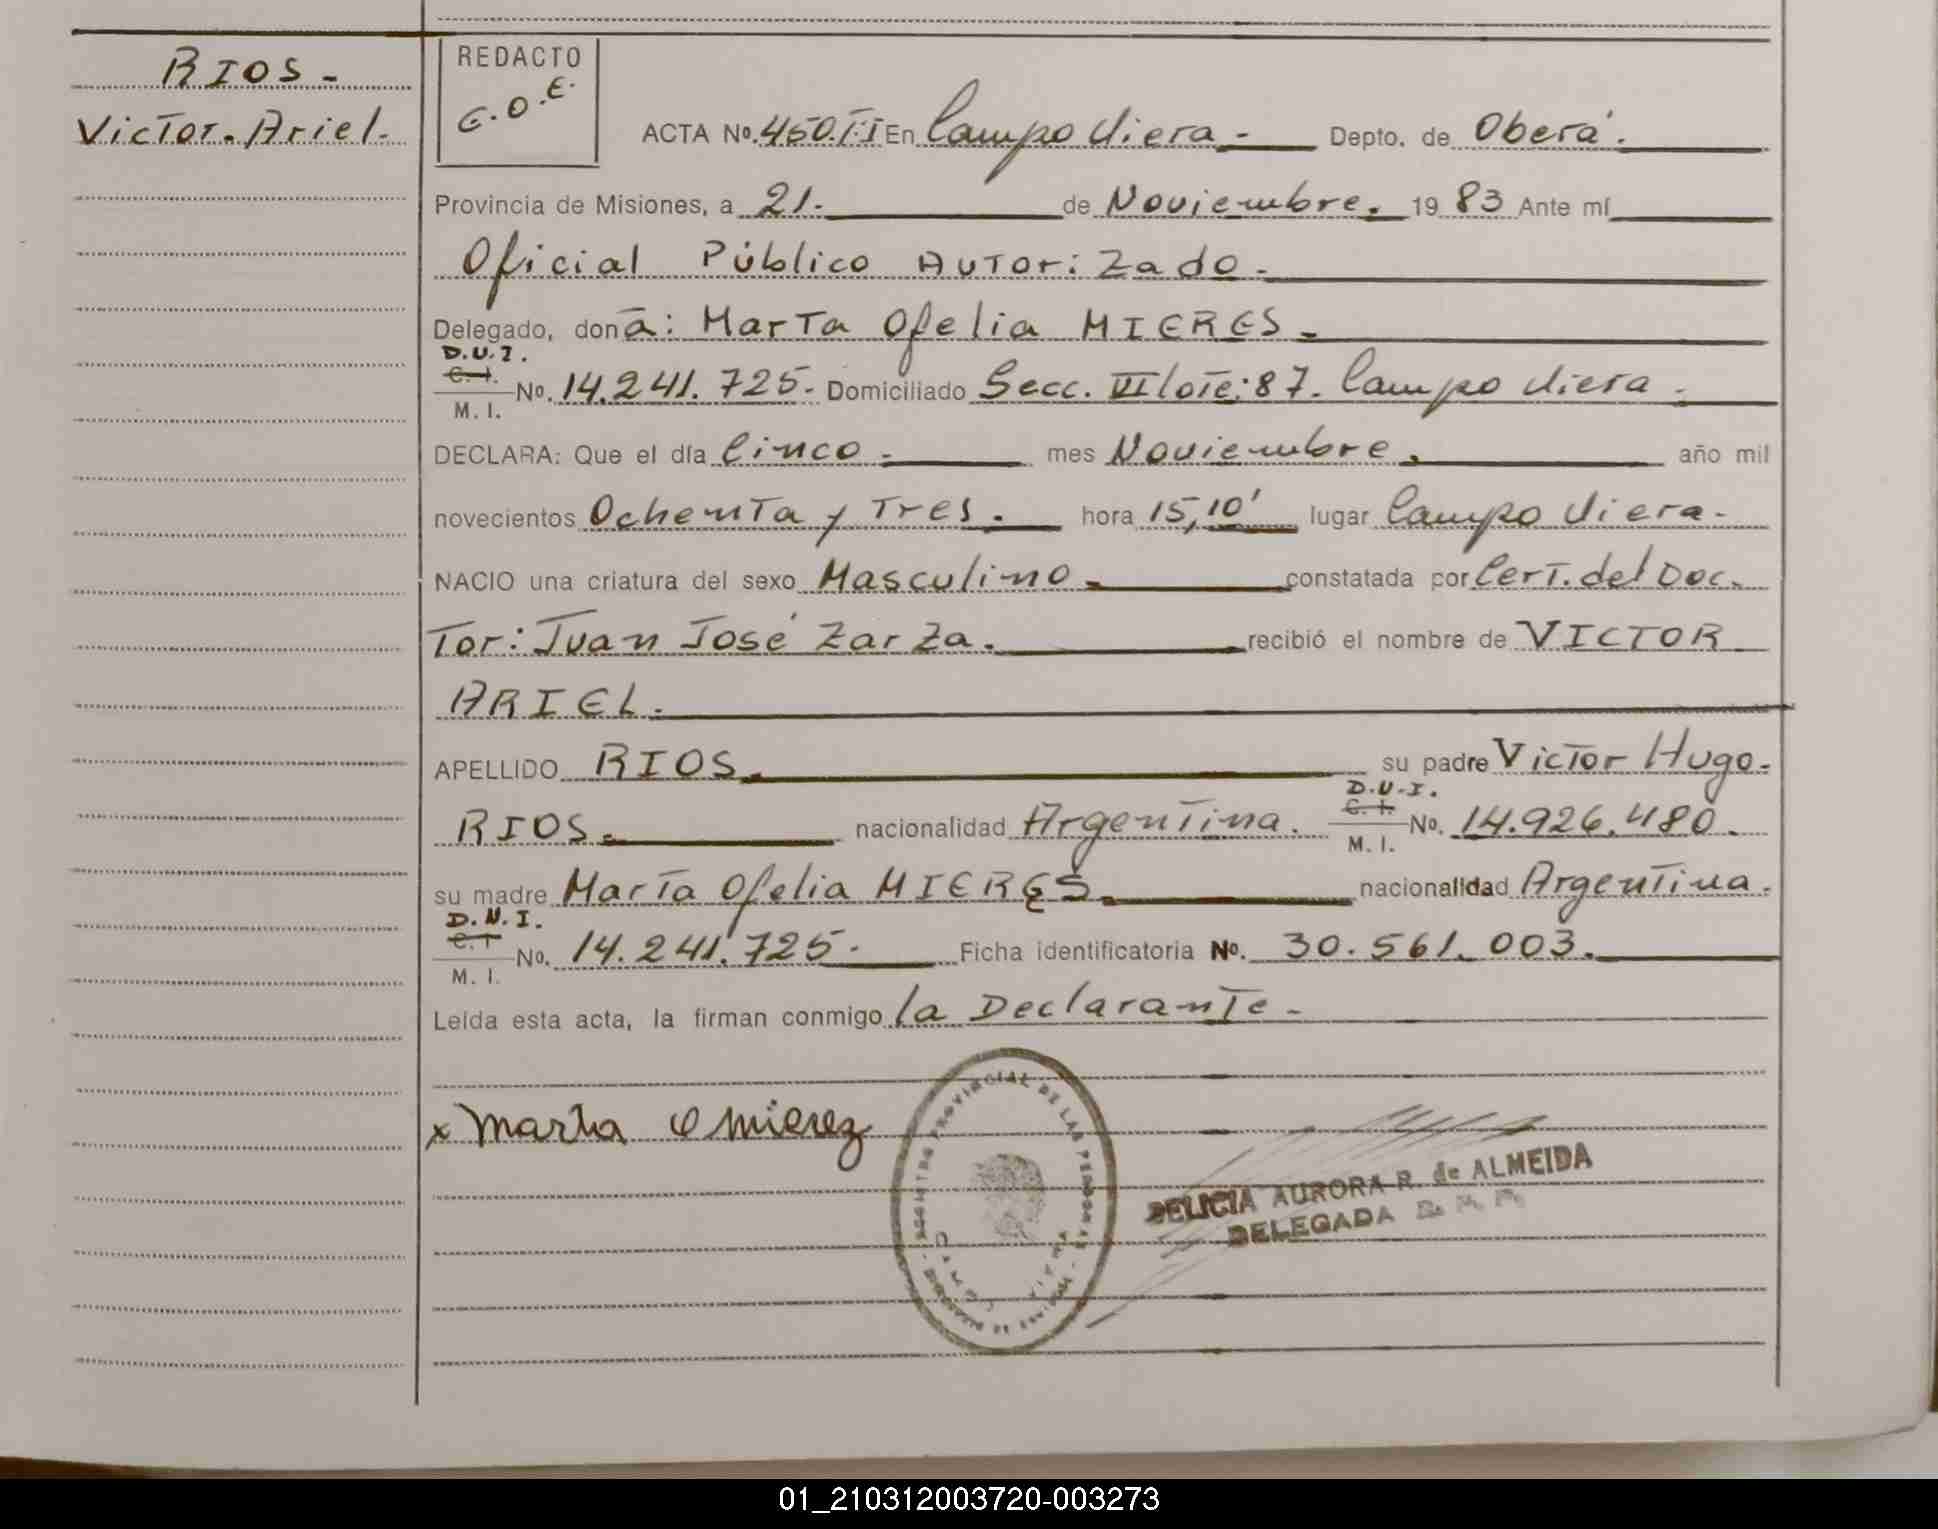 RIOS.-
Victor.Ariel.-
REDACTO
G.O.E.
ACTA Nº. 450.T:I En Campo Viera.- Depto. de Oberá.
Provincia de Misiones, a 21. de Noviembre. 19 83 Ante mí
Oficial Público Autorizado.-
Delegado, don a: Marta Ofelia MIERES.-
D.U.I.
C. I.
M. I.
No. 14.241.725.- Domiciliado Secc. VI lote:87. Campo Viera.-
DECLARA: Que el día Cinco.- mes Noviembre. año mil
novecientos Ochenta y Tres. hora 15,10' lugar Campo Viera.-
NACIO una criatura del sexo Masculino.- constatada por Cert. del Doc.
Tor: Juan José Zarza. recibió el nombre de VICTOR
ARIEL.-
APELLIDO RIOS. su padre Victor Hugo.-
RIOS. nacionalidad Argentina. D.U.I. C. I. M. I. No. 14.926.480.
su madre Marta Ofelia MIERES. nacionalidad Argentina.
D.N.I.
C. I
M. I.
No. 14.241.725.- Ficha identificatoria No. 30.561.003.
Leída esta acta, la firman conmigo la Declarante.-
x Marta O Mierez
REGISTRO PROVINCIAL DE LAS PERSONAS
CAMPO VIERA
DELICIA AURORA R. de ALMEIDA
DELEGADA
01_210312003720-003273